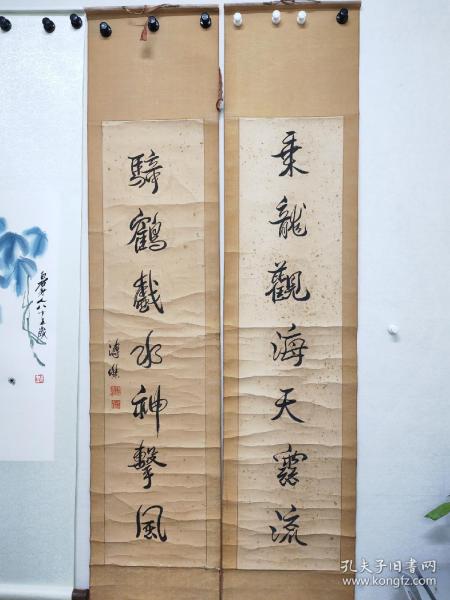 乘龍觀海天雲流
騎鶴戲水神擊風
溥傑
孔夫子旧书网
www.kongfz.com